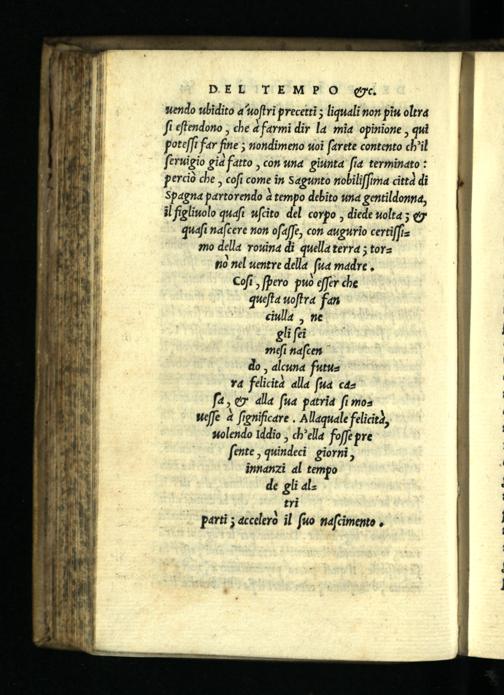 DEL TEMPO &c.
uendo ubidito a' uostri precetti; liquali non piu oltra
si estendono, che à farmi dir la mia opinione, qui
potessi far fine; nondimeno uoi sarete contento ch'il
seruigio già fatto, con una giunta sia terminato:
perciò che, cosi come in Sagunto nobilissima città di
Spagna partorendo à tempo debito una gentildonna,
il figliuolo quasi uscito del corpo, diede uolta; &
quasi nascere non osasse, con augurio certissi=
mo della rouina di quella terra; tor=
nò nel uentre della sua madre.
Cosi, spero può esser che
questa uostra fan
ciulla, ne
gli sei
mesi nascen
do, alcuna futu=
ra felicità alla sua ca=
sa, & alla sua patria si mo=
uesse à significare. Allaquale felicità,
uolendo Iddio, ch'ella fosse pre
sente, quindeci giorni,
innanzi al tempo
de gli al=
tri
parti; accelerò il suo nascimento.